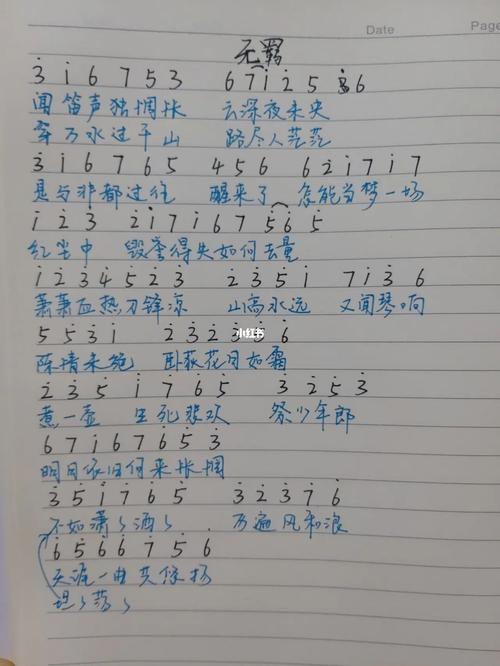 Date Page
无羁
3 i 6 7 5 3 6 7 i 2 5 3 6
闻笛声独惆怅 云深夜未央
穿万水过千山 路尽人茫茫
3 i 6 7 6 5 4 5 6 6 2 i 7 i 7
是与非都过往 醒来了 怎能当梦一场
i 2 3 2 i 7 i 6 7 5 6 5
红尘中 毁誉得失如何去量
i 2 3 4 5 2 3 2 3 5 i 7 i 3 6
萧萧血热刀锋凉 山高水远 又闻琴响
5 5 3 i 2 3 2 3 3 6
小红书
陈情未绝 卧荻花月如霜
2 3 5 i 7 6 5 3 2 5 3
煮一壶 生死悲欢 祭少年郎
6 7 i 6 7 6 5 3
明月依旧何来怅惘
3 5 i 7 6 5 3 2 3 7 6
不如潇潇洒洒 历遍风和浪
6 5 6 6 7 5 6
天涯一曲共悠扬
坦坦荡荡